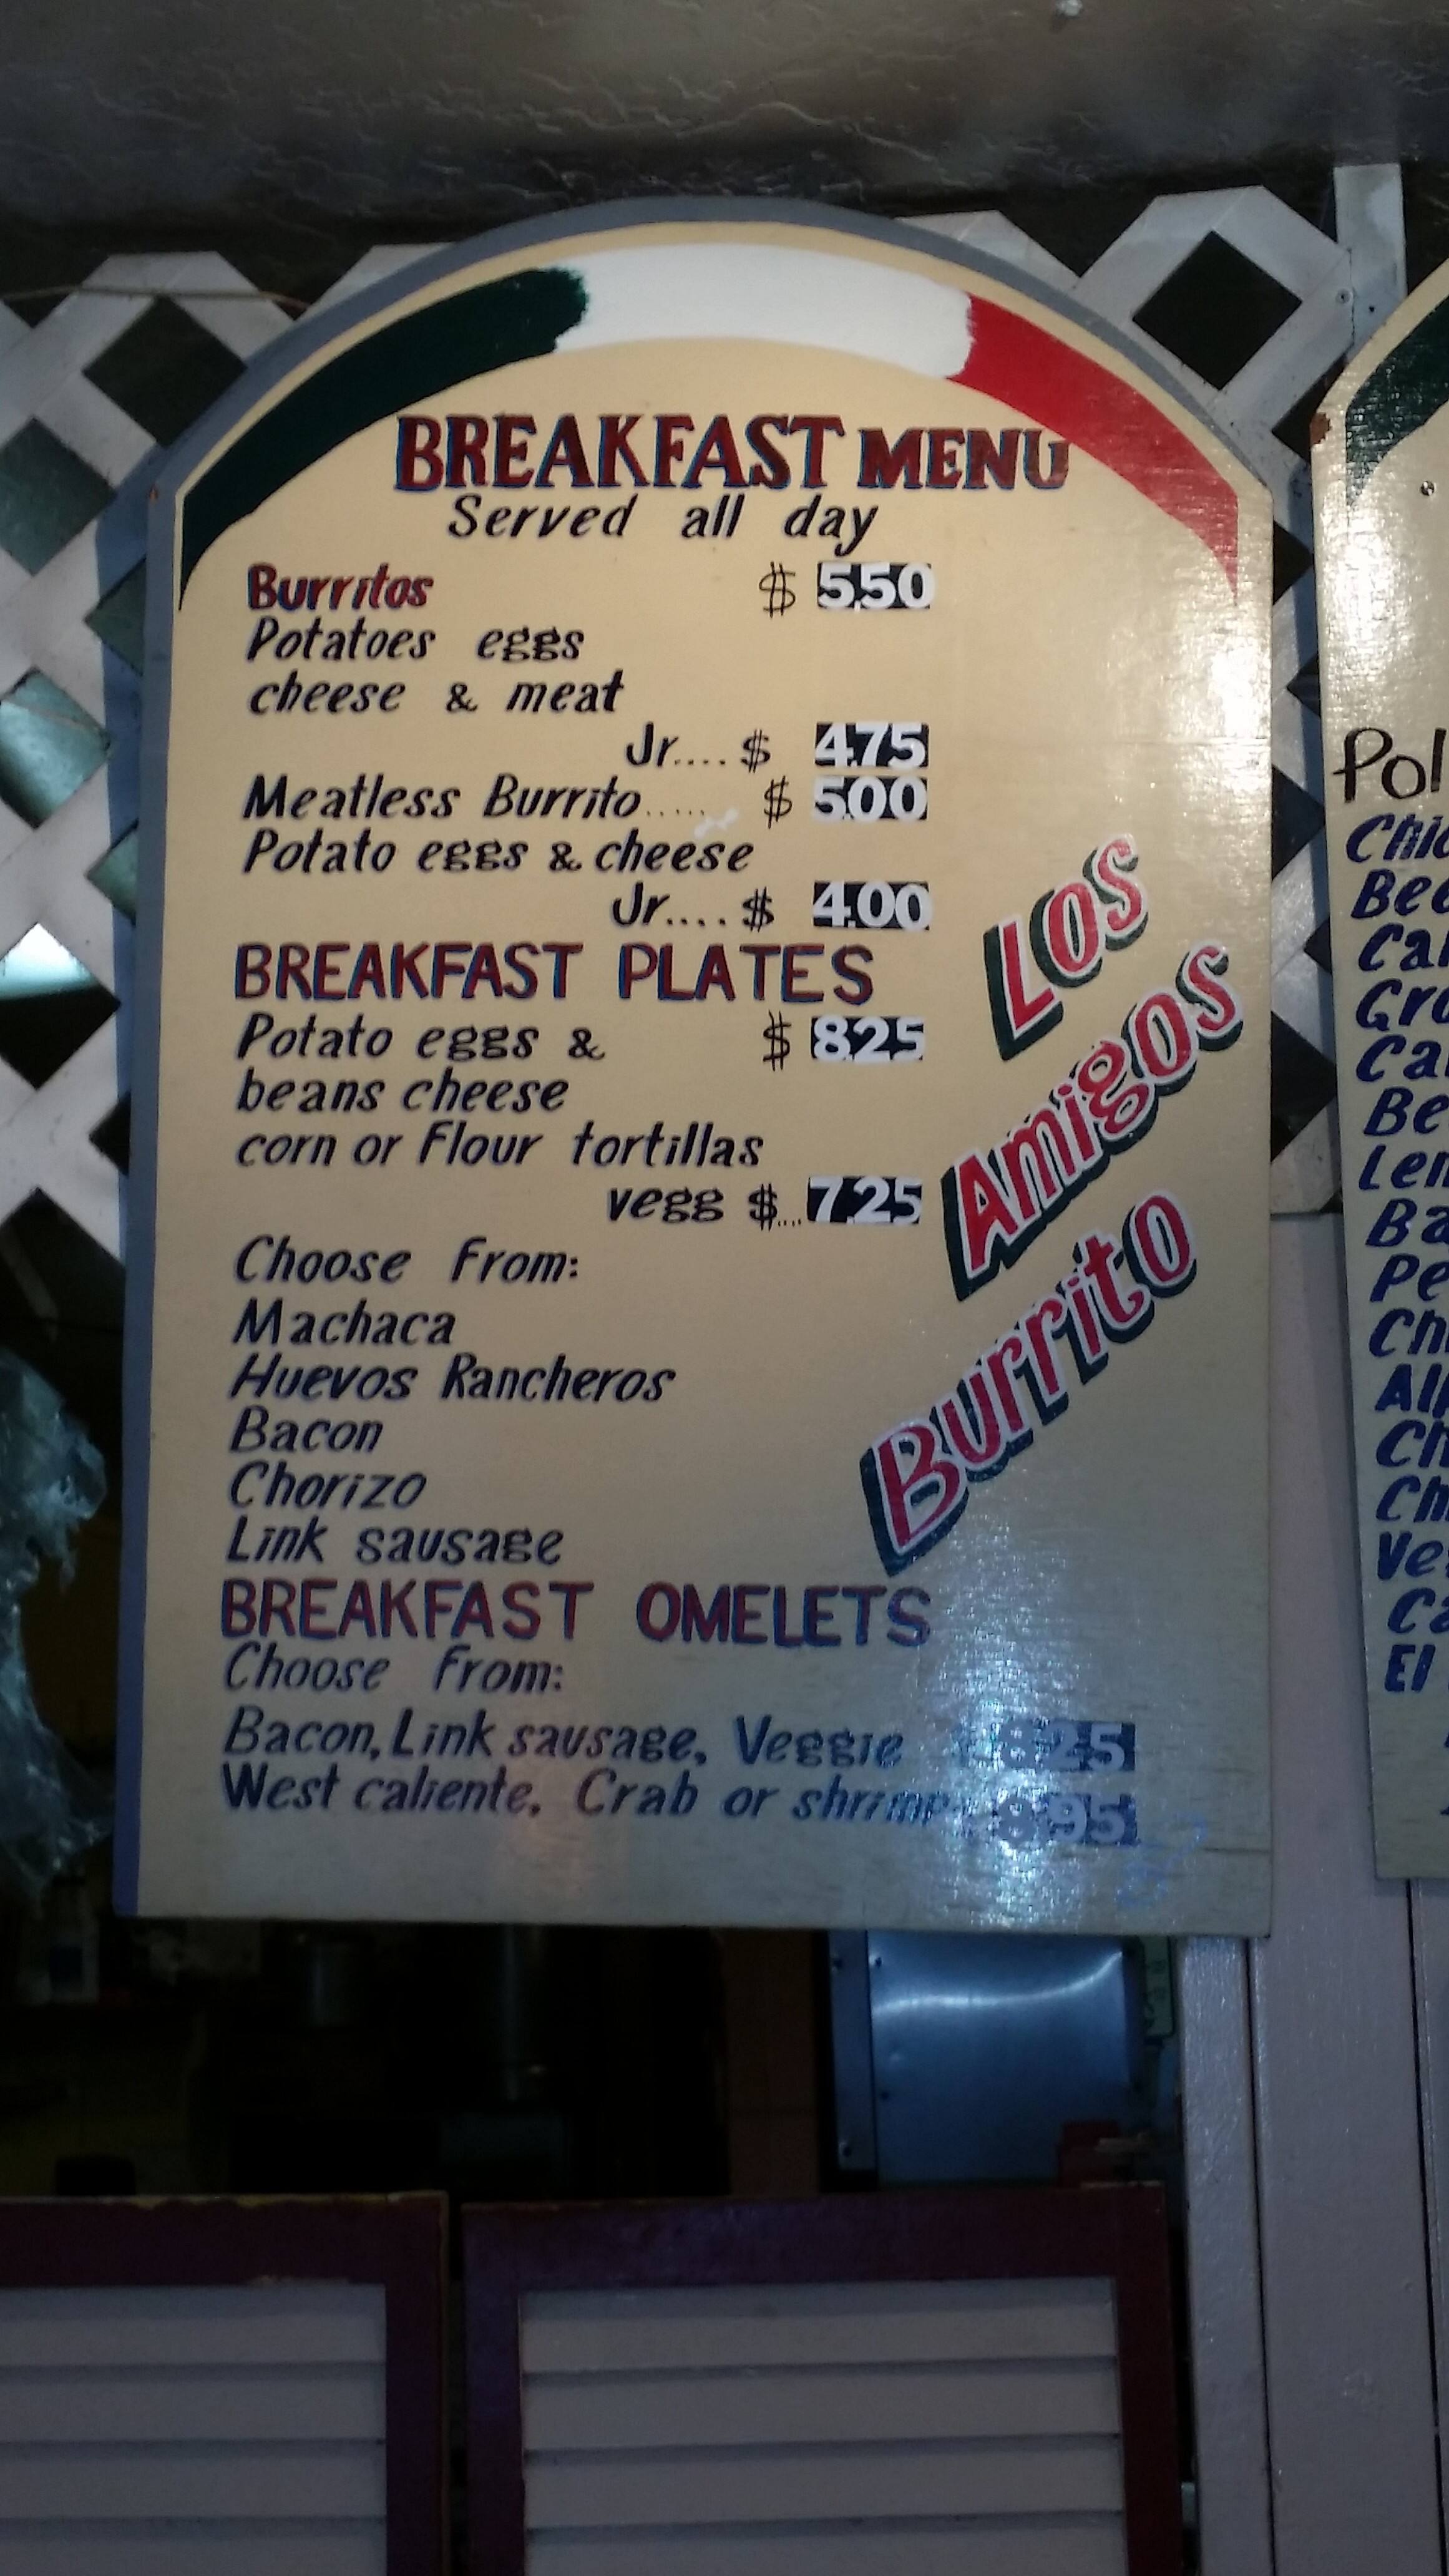 BREAKFAST MENU
Served all day
Burritos $ 5.50
Potatoes eggs
cheese & meat
Jr.... $ 4.75
Meatless Burrito..... $ 5.00
Potato eggs & cheese
Jr.... $ 4.00
BREAKFAST PLATES
Potato eggs & $ 8.25
beans cheese
corn or Flour tortillas
vegg $.... 7.25
Choose From:
Machaca
Huevos Rancheros
Bacon
Chorizo
Link sausage
BREAKFAST OMELETS
Choose From:
Bacon, Link sausage, Veggie 8.25
West caliente, Crab or shrimp 8.95
Los
Amigos
Burrito